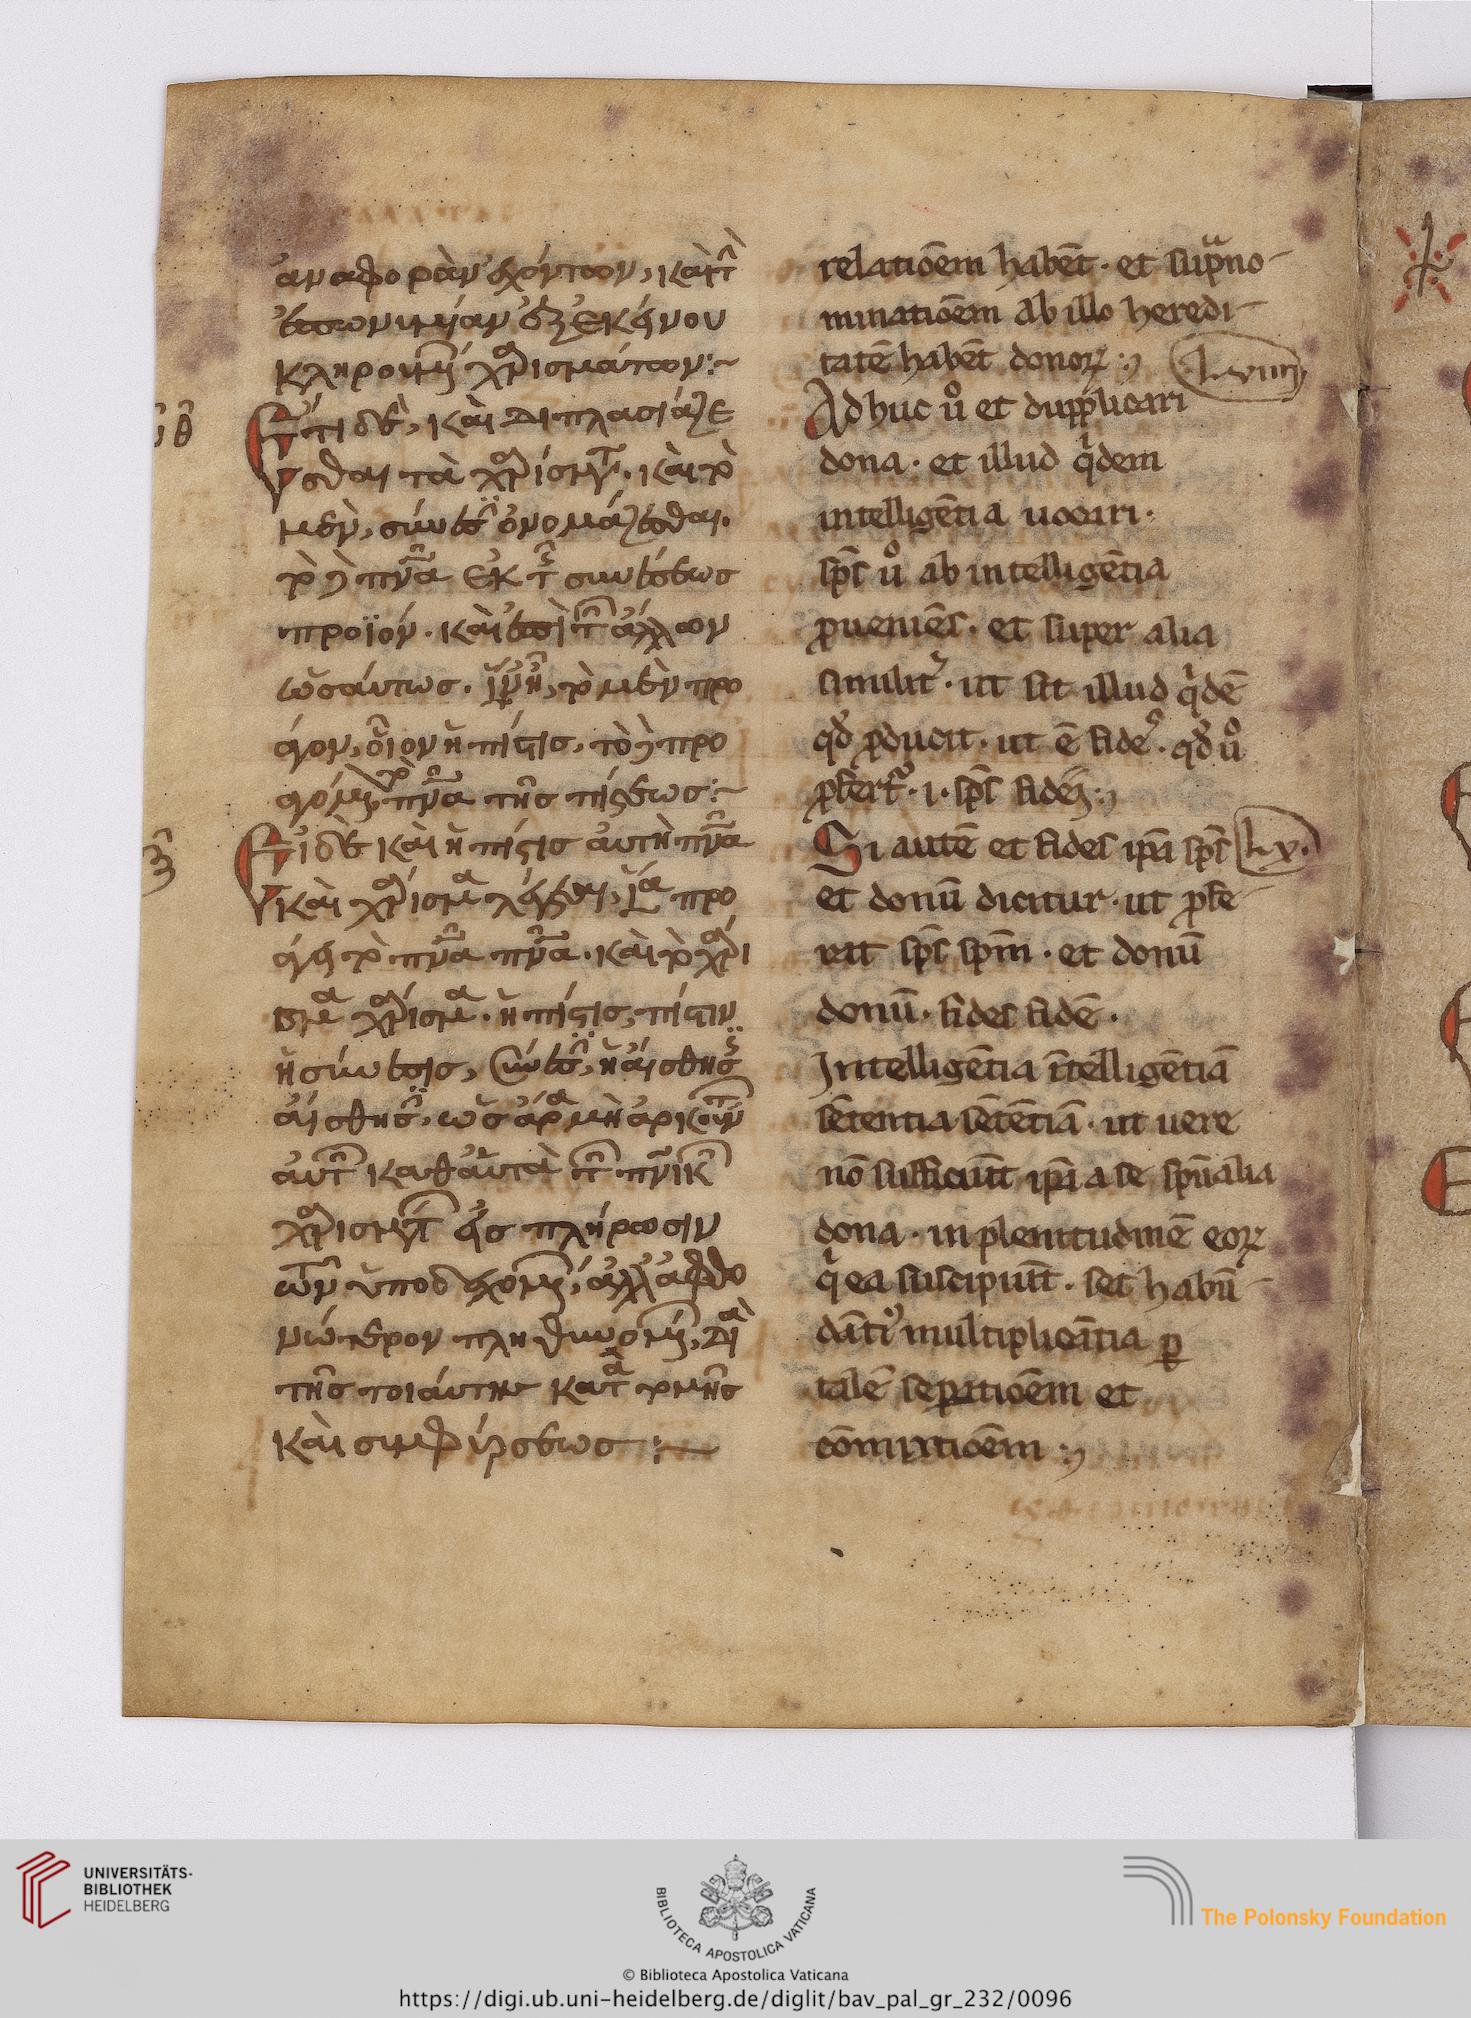 ἀναφορὰν ἐχόντων, καὶ τ(ὴν)
ἐπωνυμίαν ἐξ ἐκείνου
κληρονομ χαρισμάτων:~
Ἔτι δὲ, καὶ διπλασιάζε
σθαι τὰ χαρίσματ. καὶ τὸ
μὲν, σύνεσιν ὀνομάζεσθαι.
τὸ δὲ πνᾶ ἐκ τῆς συνέσεως
προϊόν. καὶ ἐπὶ τῶν ἄλλων
ὡσαύτως. τὸ μὲν προ
άγον, οἷον ἡ πίστις, τὸ δὲ προ
αγόμενον τὸ πνᾶ τῆς πίστεως:~
Εἰ δὲ καὶ ἡ πίστις αὐτὴ πνᾶ
καὶ χάρισμα λέγεται, ἵνα προ
άγῃ τὸ πνᾶ πνᾶ. καὶ τὸ χάρι
σμα χάρισμα. ἡ πίστις, πίστιν
ἡ σύνεσις, σύνεσιν, ἡ αἴσθησις
αἴσθησιν, ὡς ἄρα μὴ ἀρκούντων
αὐτῶν καθ' αὑτὰ τῶν πνικῶν
χαρισμάτων εἰς πλήρωσιν
τῶν ὑποδεχομένων, ἀλλ' ἀφθο
νώτερον πληθυνομένων, διὰ
τῆς τοιαύτης κατατομῆς
καὶ συμφύρσεως:~
relatiōem habēt. et supͣno-
minatiōem ab illo heredi-
tatē habēt donoꝝ :
Lviiij
Ad huc u᷎ et dupplicari
dona. et illud qͥdem
intelligētia uocari.
sp̄s uͦ ab intelligētia
ꝓueniēs. et super alia
similit᷑. ut sit illud qͥdē
qd̕ ꝓducit. ut ē fides. qd̕ uͦ
ꝓfert᷑. i. sp̄s fidei :
Si autē et fides ip̄a sp̄s Lx.
et donū dicitur. ut ꝓfe-
rat sp̄s sp̄m. et donū
donū. fides fidē.
Intelligētia ītelligētiā
sētentia sētētiā. ut uere
nō sufficiūt ip̄a a se sp̄ualia
dona. in plenitudinē eoꝝ
qͥ ea suscipiūt. set habū-
dātiꝰ multiplicātia ꝑ
talē seꝑatiōem et
cōmixtiōem :
UNIVERSITÄTS-
BIBLIOTHEK
HEIDELBERG
BIBLIOTECA APOSTOLICA VATICANA
The Polonsky Foundation
© Biblioteca Apostolica Vaticana
https://digi.ub.uni-heidelberg.de/diglit/bav_pal_gr_232/0096